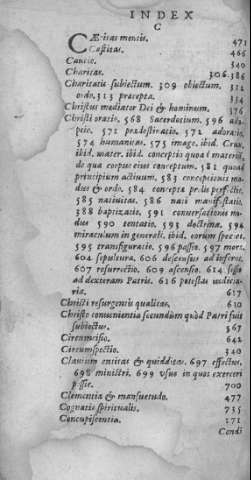 INDEX
C
CÆcitas mentis. 471
Castitas. 466
Cautio. 340
Charitas. 306.386
Charitatis subiectum. 309 obiectum. 312
ordo. 313 præcepta. 334
Christus mediator Dei & hominum. 576
Christi oratio. 568 Sacerdotium. 596 ado-
ptio. 571 prædestinatio. 572 adoratio.
574 humanitas. 575 imago. ibid. Crux.
ibid. mater. ibid. conceptio quoad materiā,
de qua corpus eius conceptum. 581 quoad
principium actiuum. 583 conceptionis mo-
dus & ordo. 584 concepta prolis perfectio.
585 natiuitas. 586 nati manifestatio.
388 baptizatio. 591 conuersationis mo-
dus 590 tentatio. 593 doctrina. 594
miraculum in generali. ibid. eorum species.
595 transfiguratio. 596 passio. 597 mors.
604 sepultura. 606 descensus ad inferos.
607 resurrectio. 609 ascensio. 614 sessio
ad dexteram Patris. 616 potestas iudicia-
ria. 617
Christi resurgentis qualitas. 610
Christo conuenientia secundùm quòd Patri fuit
subiectus. 567
Circumcisio. 642
Circumspectio. 340
Clauium entitas & quidditas. 697 effectus.
698 ministri. 699 vsus in quos exerceri
possit. 700
Clementia & mansuetudo. 477
Cognatio spiritualis. 735
Concupiscentia. 171
Condi